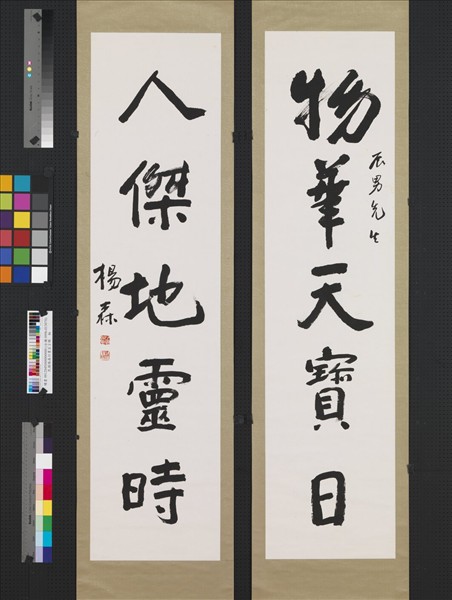 物華天寶日
辰男先生
人傑地靈時
楊森